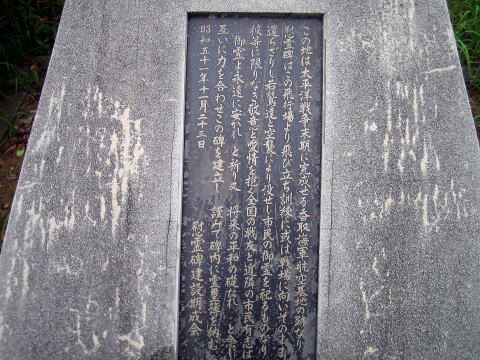 この地は太平洋戦争末期に完成せる香取海軍航空基地の跡なり
慰霊碑はこの飛行場より飛び立ち訓練に或は戦場に向いそのまま
還らざりし若鷲達と空襲により没せし市民の御霊を祀るものなり
彼等に限りなき敬意と愛情を抱く全国の戦友と近隣の市民有志は
御霊よ永遠に安かれ と祈り又 将来の平和の礎たれ と念じ
互いに力を合わせこの碑を建立し 謹んで碑内に霊璽簿を納む
昭和五十一年十一月二十三日 慰霊碑建設期成会